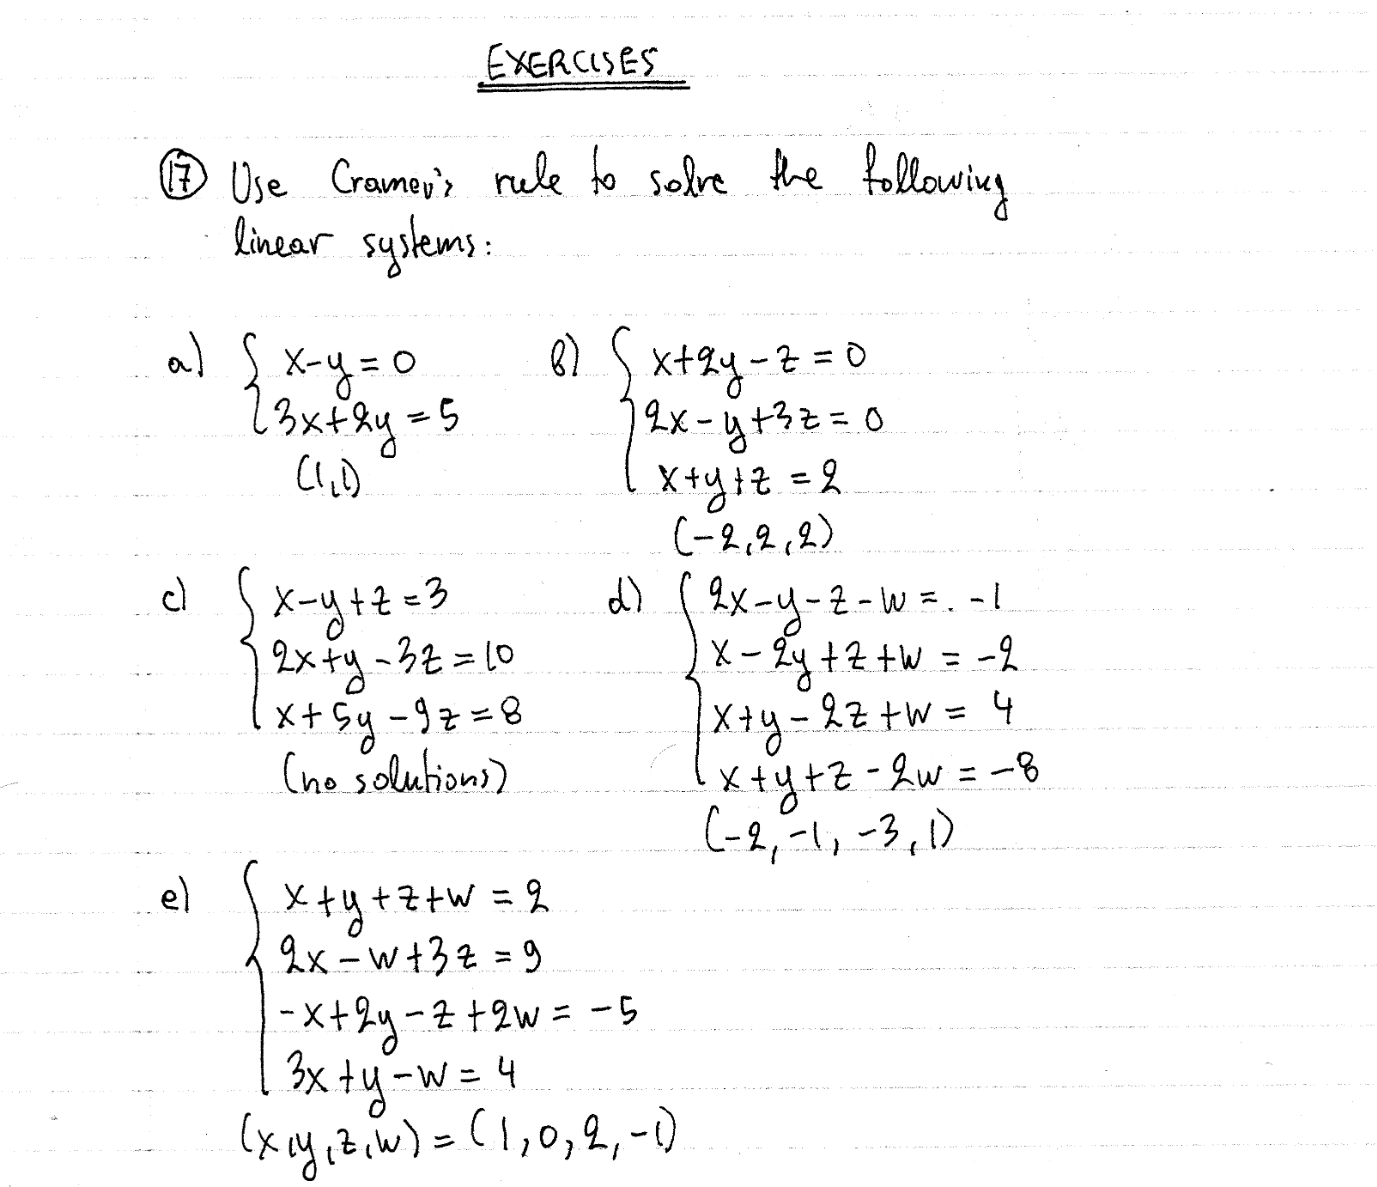 EXERCISES
⑰ Use Cramer's rule to solve the following
linear systems:
a) { x-y=0
3x+2y=5
(1,1)
b) { x+2y-z=0
2x-y+3z=0
x+y+z=2
(-2,2,2)
c) { x-y+z=3
2x+y-3z=10
x+5y-9z=8
(no solutions)
d) { 2x-y-z-w=-1
x-2y+z+w=-2
x+y-2z+w=4
x+y+z-2w=-8
(-2,-1,-3,1)
e) { x+y+z+w=2
2x-w+3z=9
-x+2y-z+2w=-5
3x+y-w=4
(x,y,z,w)=(1,0,2,-1)